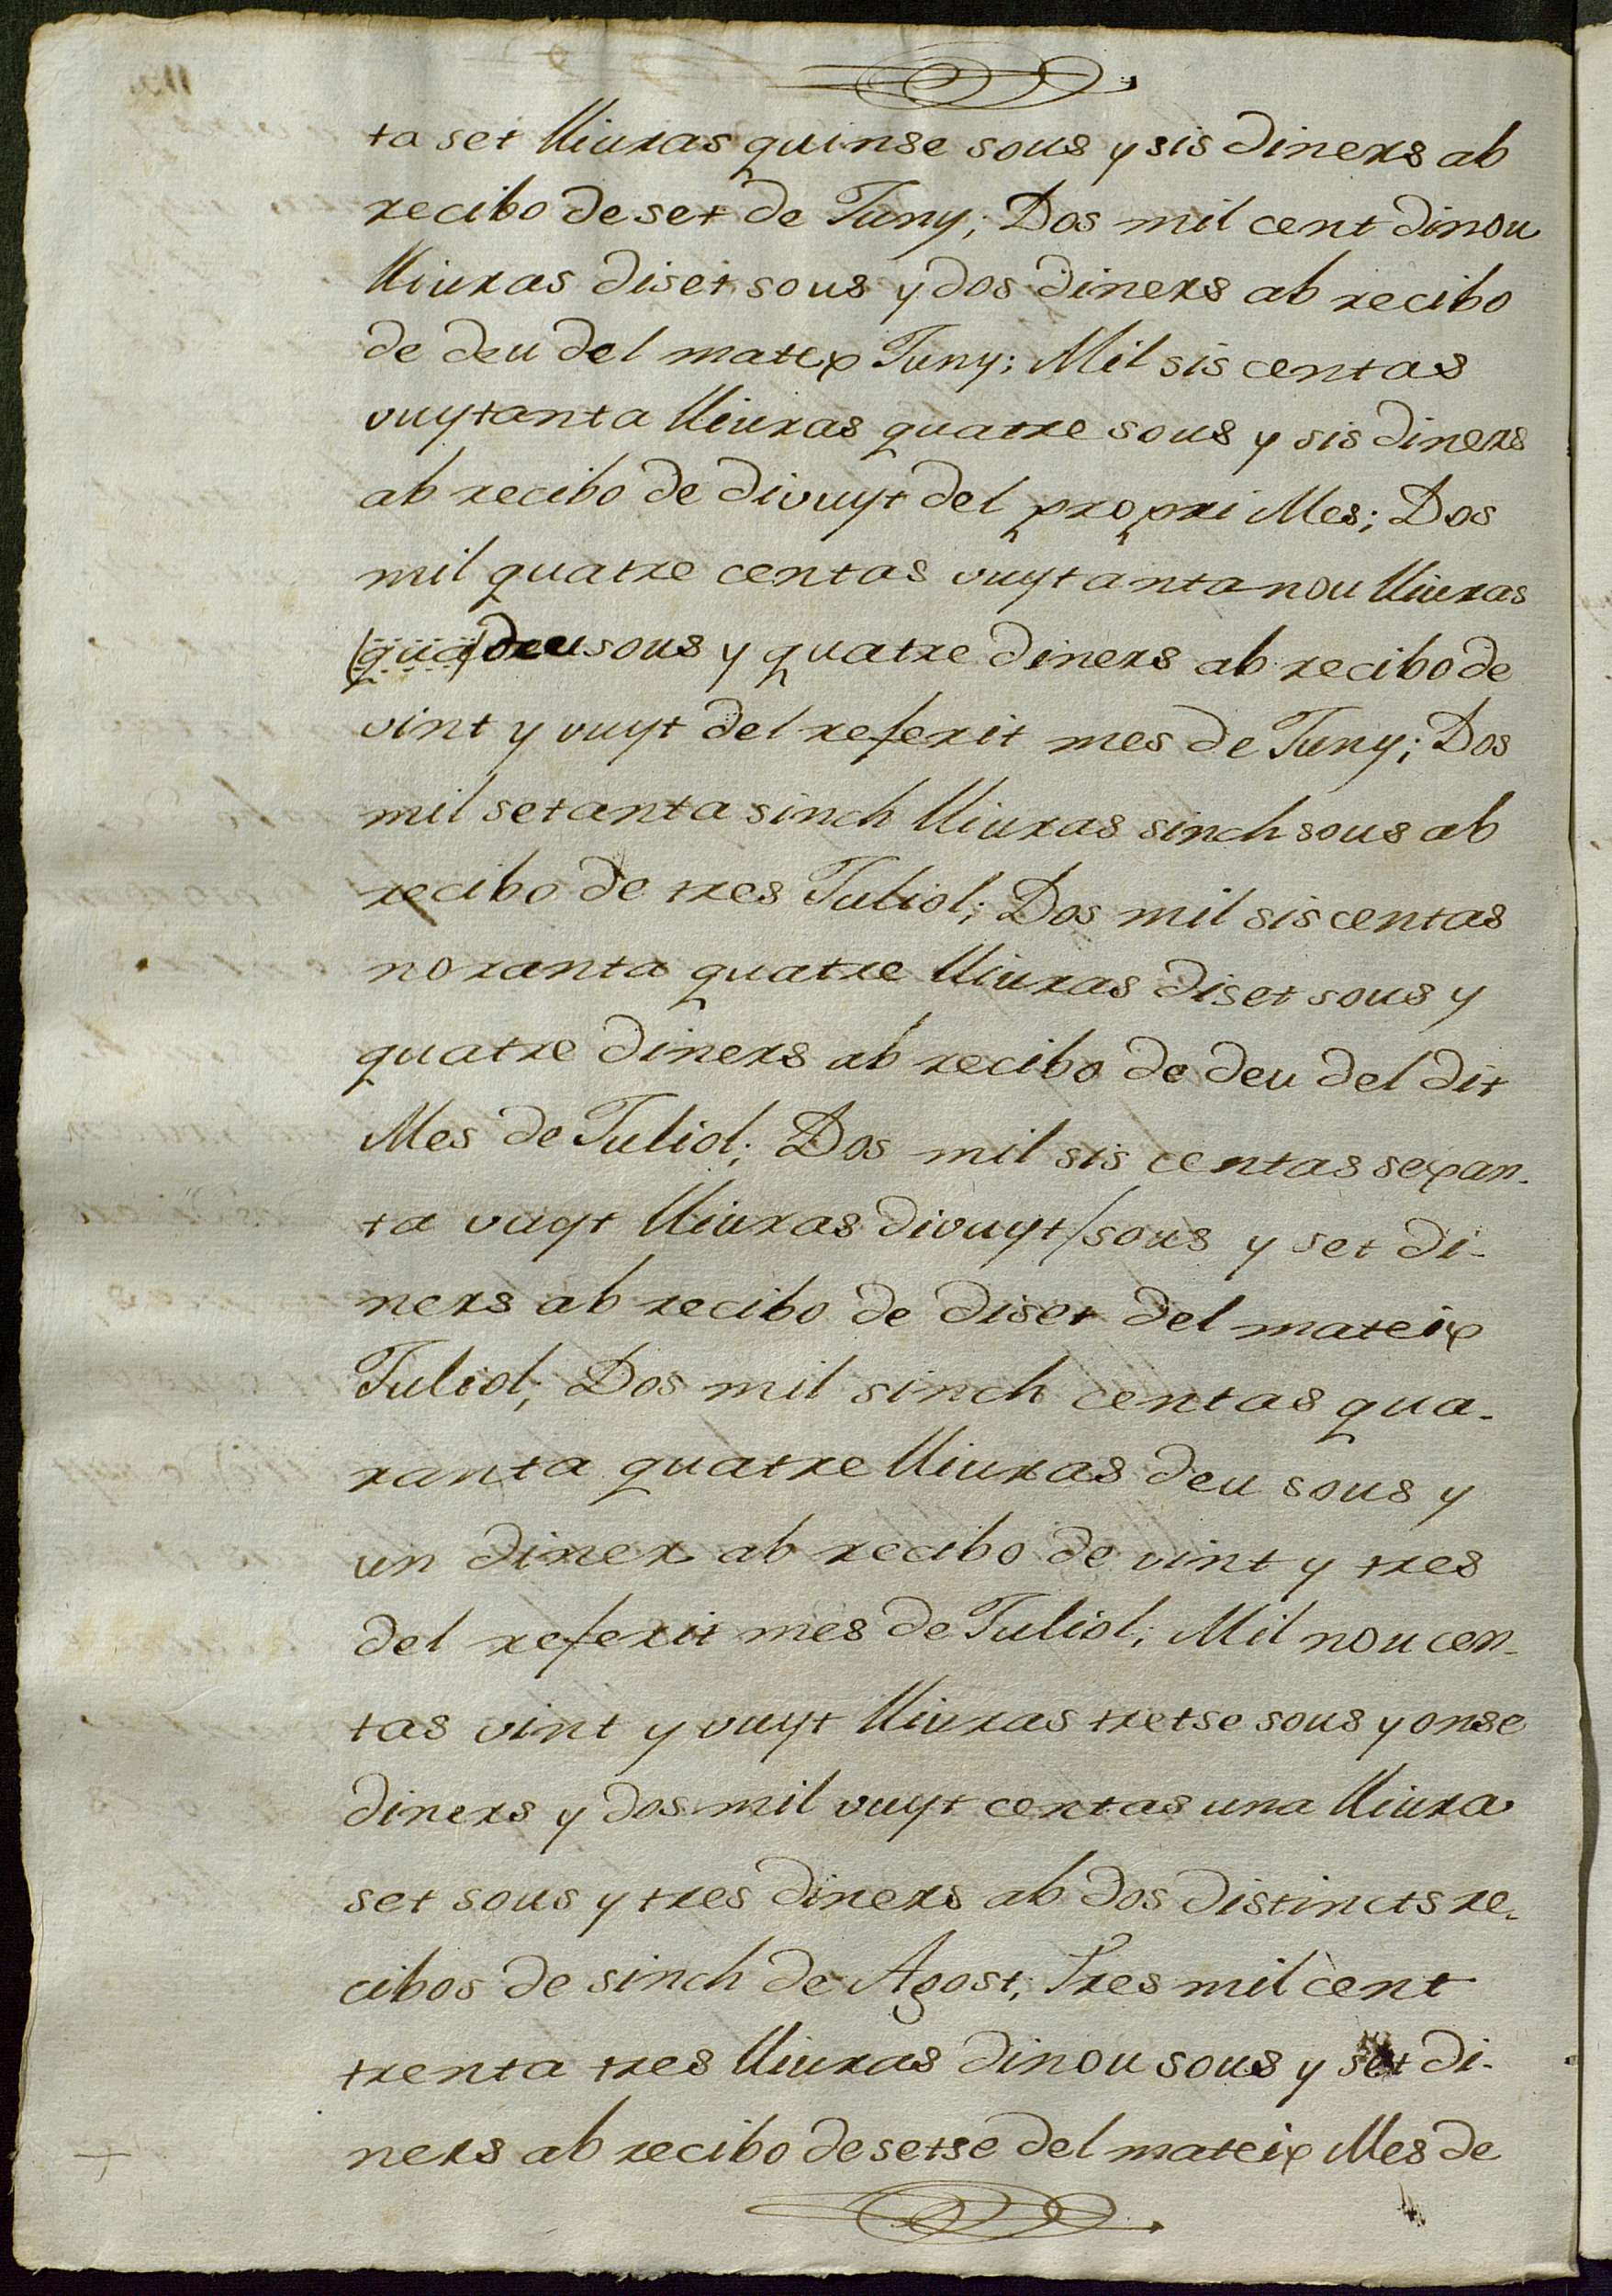 ta set lliuras quinse sous y sis diners ab
recibo de set de Juny; Dos mil cent dinou
lliuras diset sous y dos diners ab recibo
de deu del mateix Juny; Mil sis centas
vuytanta lliuras quatre sous y sis diners
ab recibo de divuyt del propri Mes; Dos
mil quatre centas vuytanta nou lliuras
(qua) deu sous y quatre diners ab recibo de
vint y vuyt del referit mes de Juny; Dos
mil setanta sinch lliuras sinch sous ab
recibo de tres Juliol; Dos mil sis centas
noranta quatre lliuras diset sous y
quatre diners ab recibo de deu del dit
Mes de Juliol; Dos mil sis centas sexan-
ta vuyt lliuras divuyt/sous y set di-
ners ab recibo de diset del mateix
Juliol; Dos mil sinch centas qua-
ranta quatre lliuras deu sous y
un diner ab recibo de vint y tres
del referit mes de Juliol; Mil nou cen-
tas vint y vuyt lliuras tretse sous y onse
diners y dos mil vuyt centas una lliura
set sous y tres diners ab dos distincts re-
cibos de sinch de Agost; Tres mil cent
trenta tres lliuras dinou sous y set di-
ners ab recibo de setse del mateix Mes de